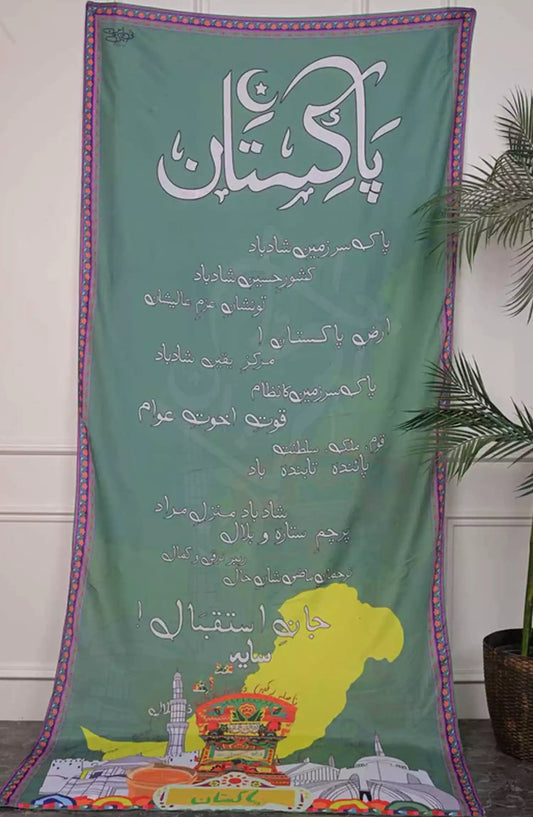 پاکِستان
پاک سرزمین شادباد
کشورِ حسین شادباد
تو نشانِ عزمِ عالیشان
ارضِ پاکستان !
مرکزِ یقین شادباد
پاک سرزمین کا نظام
قوتِ اخوتِ عوام
قوم، ملک، سلطنت
پائندہ تابندہ باد
شاد باد منزلِ مراد
پرچمِ ستارہ و ہلال
رہبرِ ترقی و کمال
ترجمانِ ماضی شانِ حال
جانِ استقبال !
سایہ
پاکستان